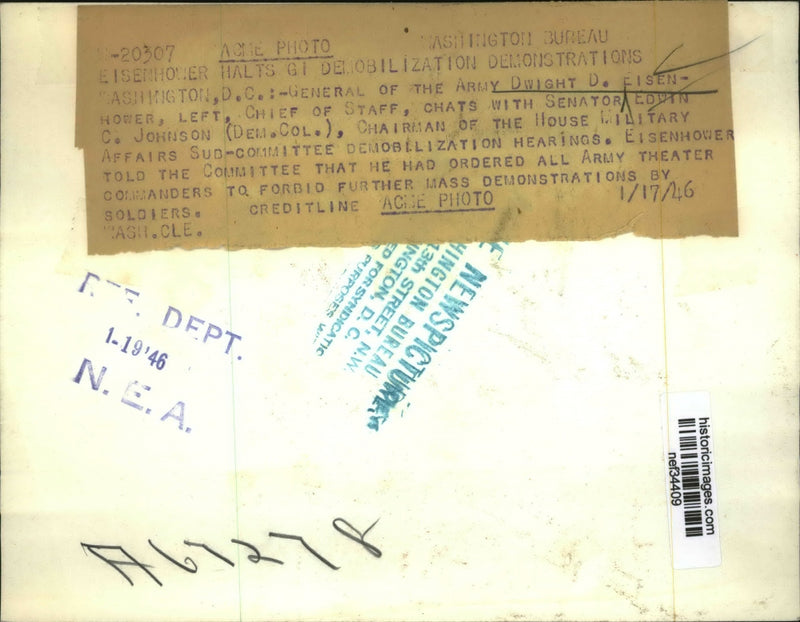 -20307 ACME PHOTO WASHINGTON BUREAU
EISENHOWER HALTS GI DEMOBILIZATION DEMONSTRATIONS
WASHINGTON, D.C.:-GENERAL OF THE ARMY DWIGHT D. EISEN-
HOWER, LEFT, CHIEF OF STAFF, CHATS WITH SENATOR EDWIN
C. JOHNSON (DEM.COL.), CHAIRMAN OF THE HOUSE MILITARY
AFFAIRS SUB-COMMITTEE DEMOBILIZATION HEARINGS. EISENHOWER
TOLD THE COMMITTEE THAT HE HAD ORDERED ALL ARMY THEATER
COMMANDERS TO FORBID FURTHER MASS DEMONSTRATIONS BY
SOLDIERS. CREDITLINE ACME PHOTO 1/17/46
WASH.CLE.
NEWSPICTURE
HINGTON BUREAU
13th STREET, N.W.
NGTON, D. C.
ED FOR SYNDICATIC
PURPOSES
REF. DEPT.
1-19'46
N. E. A.
historicimages.com
nef34409
A67278